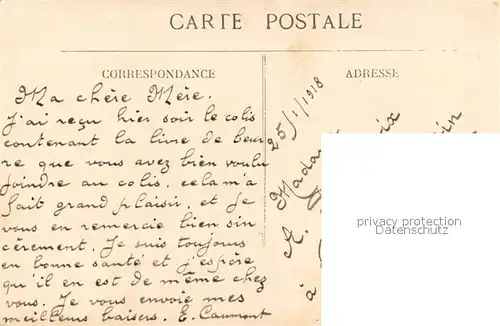 CARTE POSTALE
CORRESPONDANCE
Ma chère Mère.
J'ai reçu hier soir le colis
contenant la livre de beur
re que vous avez bien voulu
joindre au colis, cela m'a
fait grand plaisir, et je
vous en remercie bien sin
cèrement. Je suis toujours
en bonne santé et j'espère
qu'il en est de même chez
vous. Je vous envoie mes
meilleurs baisers. E. Caumont
ADRESSE
25/1/1918
Madam
à
privacy protection